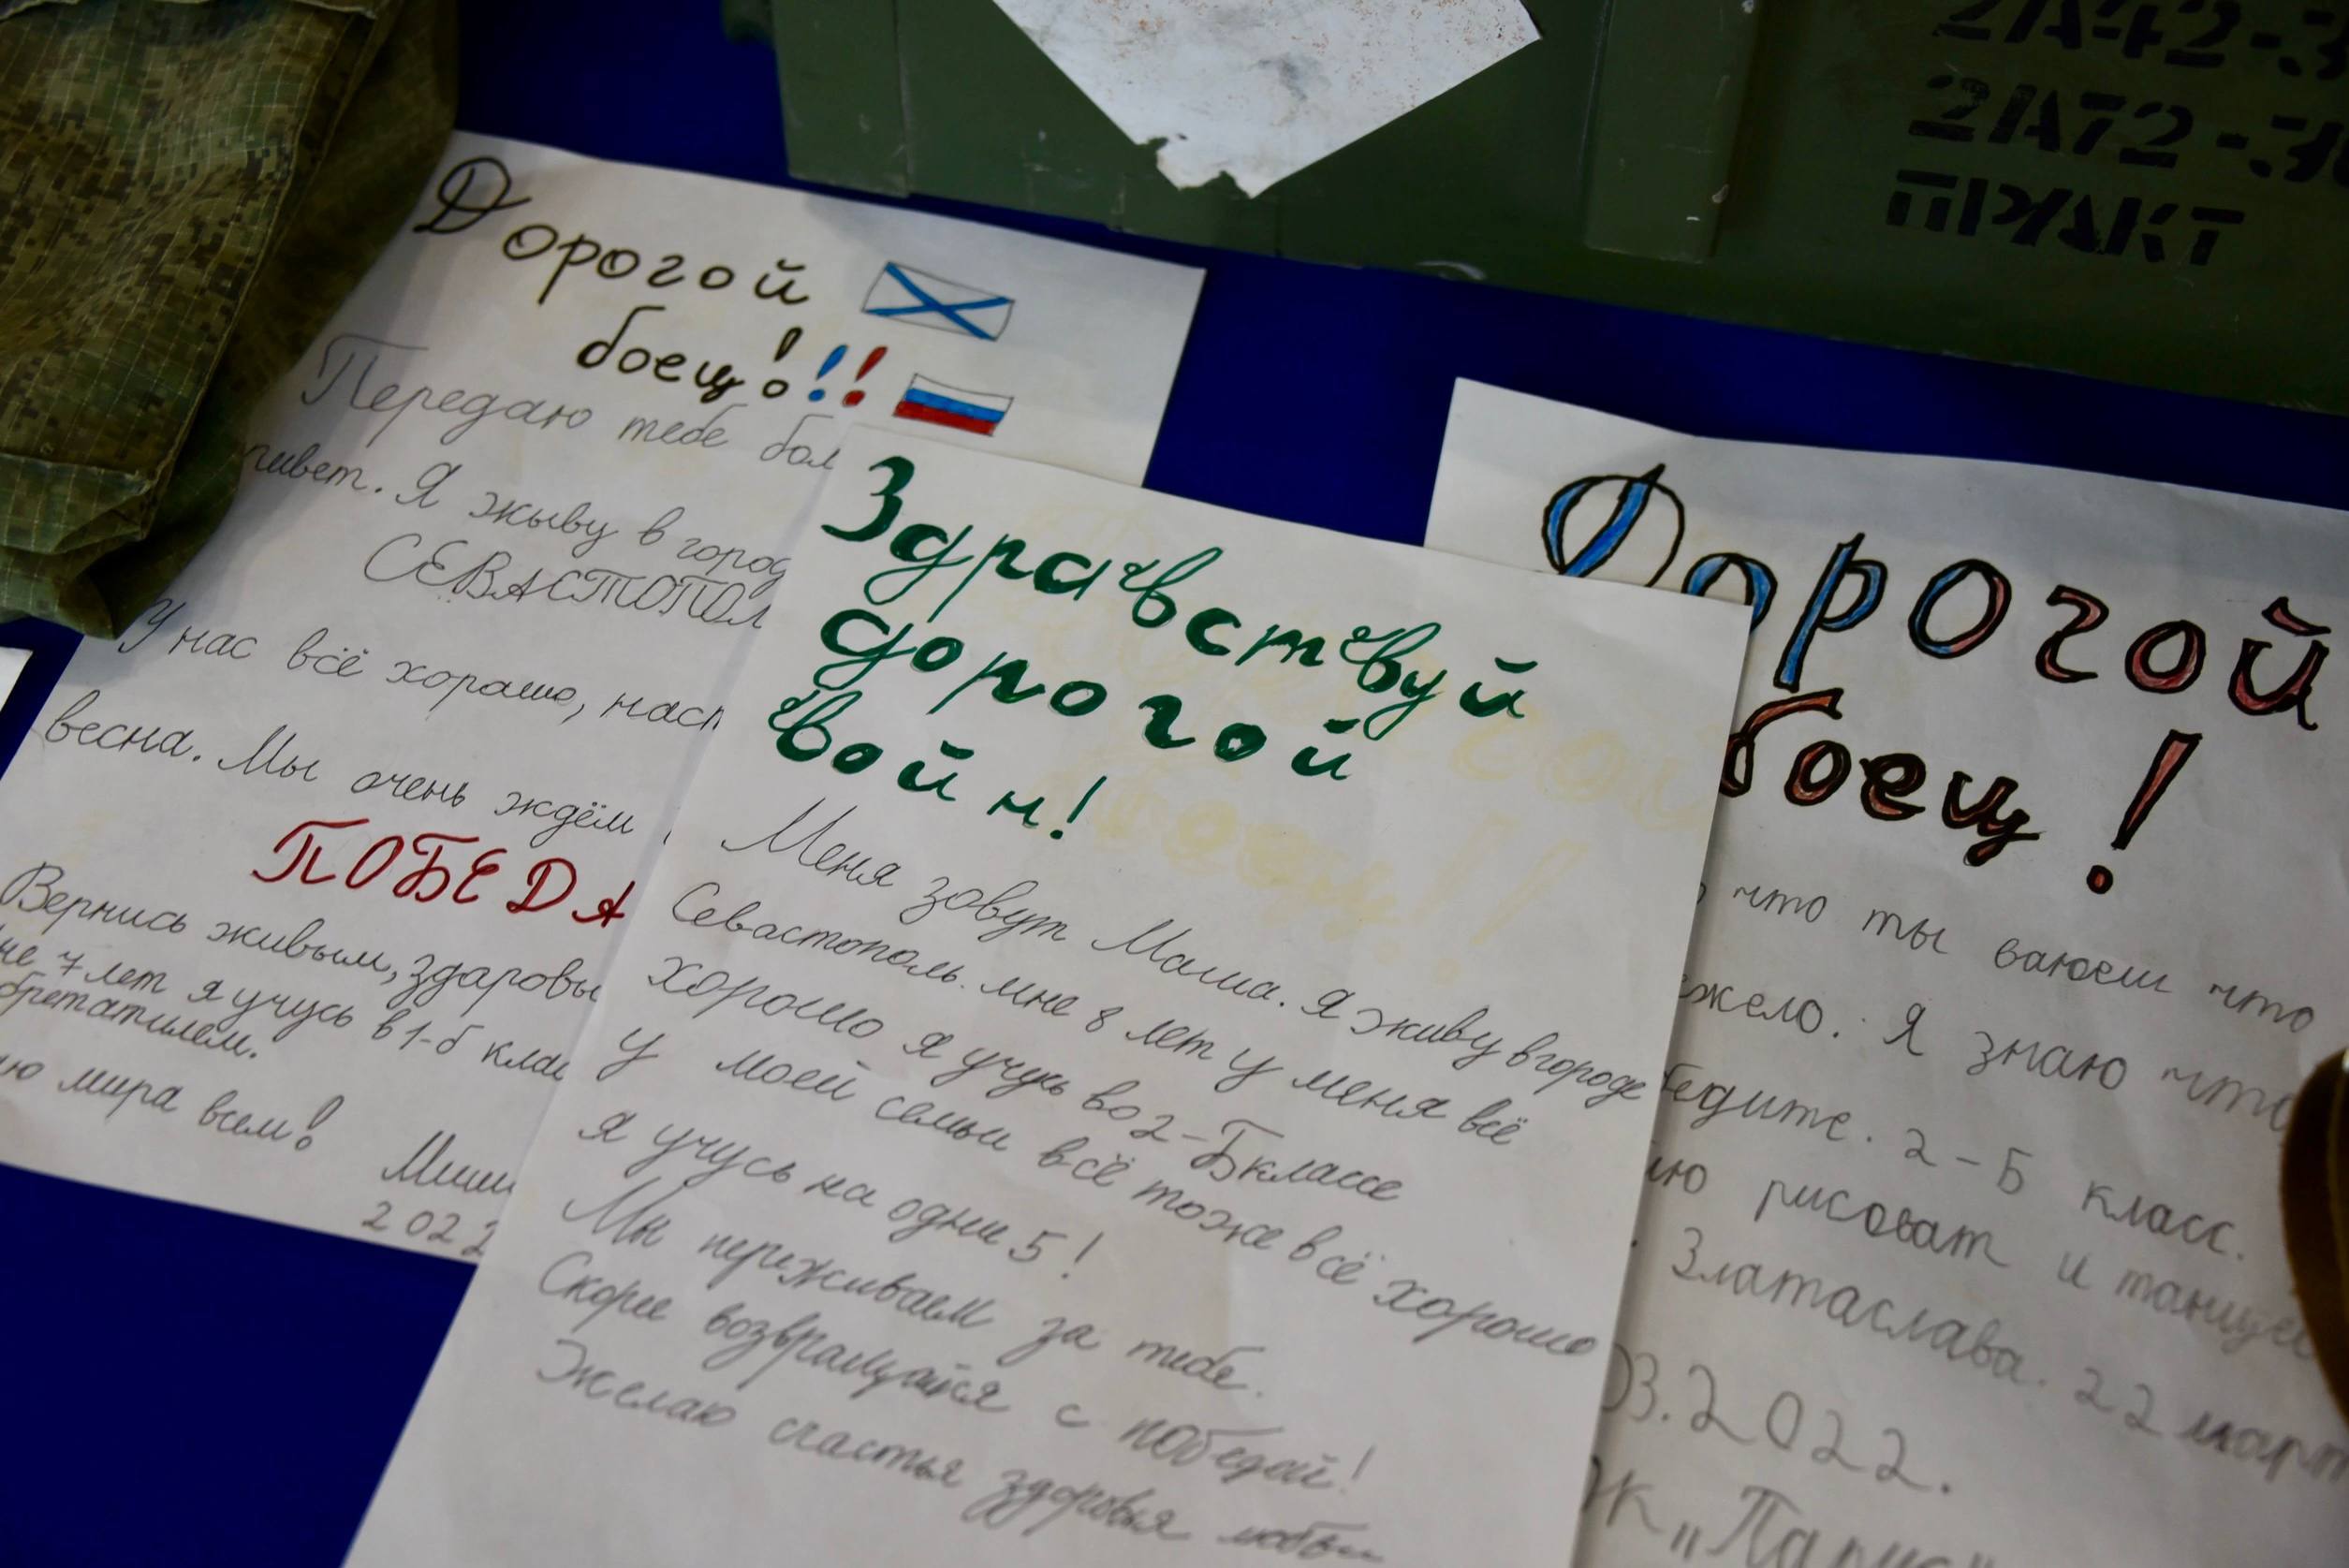 2А42-3
2А72-30
ПРАКТ
Дорогой
боец!!!
Передаю тебе бол
ривет. Я жыву в город
СЕВАСТОПОЛ
У нас всё хорашо, наст
весна. Мы очень ждём
ПОБЕДА
Вернись живым, здаровы
не 7 лет я учусь в 1-б клас
бретатилем.
ю мира всем!
Миши
2022
Здравствуй
дорогой
войн!
Меня зовут Маша. Я живу в городе
Севастополь. мне 8 лет у меня всё
хорошо я учусь во 2-Б классе
У моей семьи всё тоже всё хорошо
я учусь на одни 5!
Мы переживаем за тебе.
Скорее возвращайся с победой!
Желаю счастья здоровья любви
Дорогой
боец!
что ты ваюеш что
яжело. Я знаю что
бедите. 2-Б класс.
лю рисоват и танцев
Златаслава. 22 март
03.2022.
ЖК „Парус"